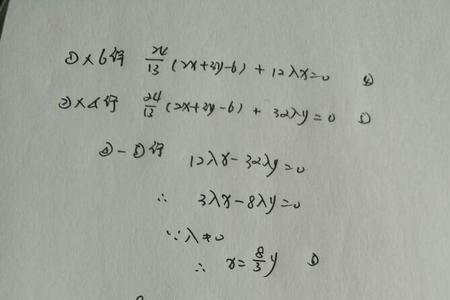 ①×6得 24/13 (2x+3y-6) + 12λx=0 ④
②×4得 24/13 (2x+3y-6) + 32λy=0 ⑤
④-⑤得 12λx-32λy=0
∴ 3λx-8λy=0
∵λ≠0
∴ x=8/3 y